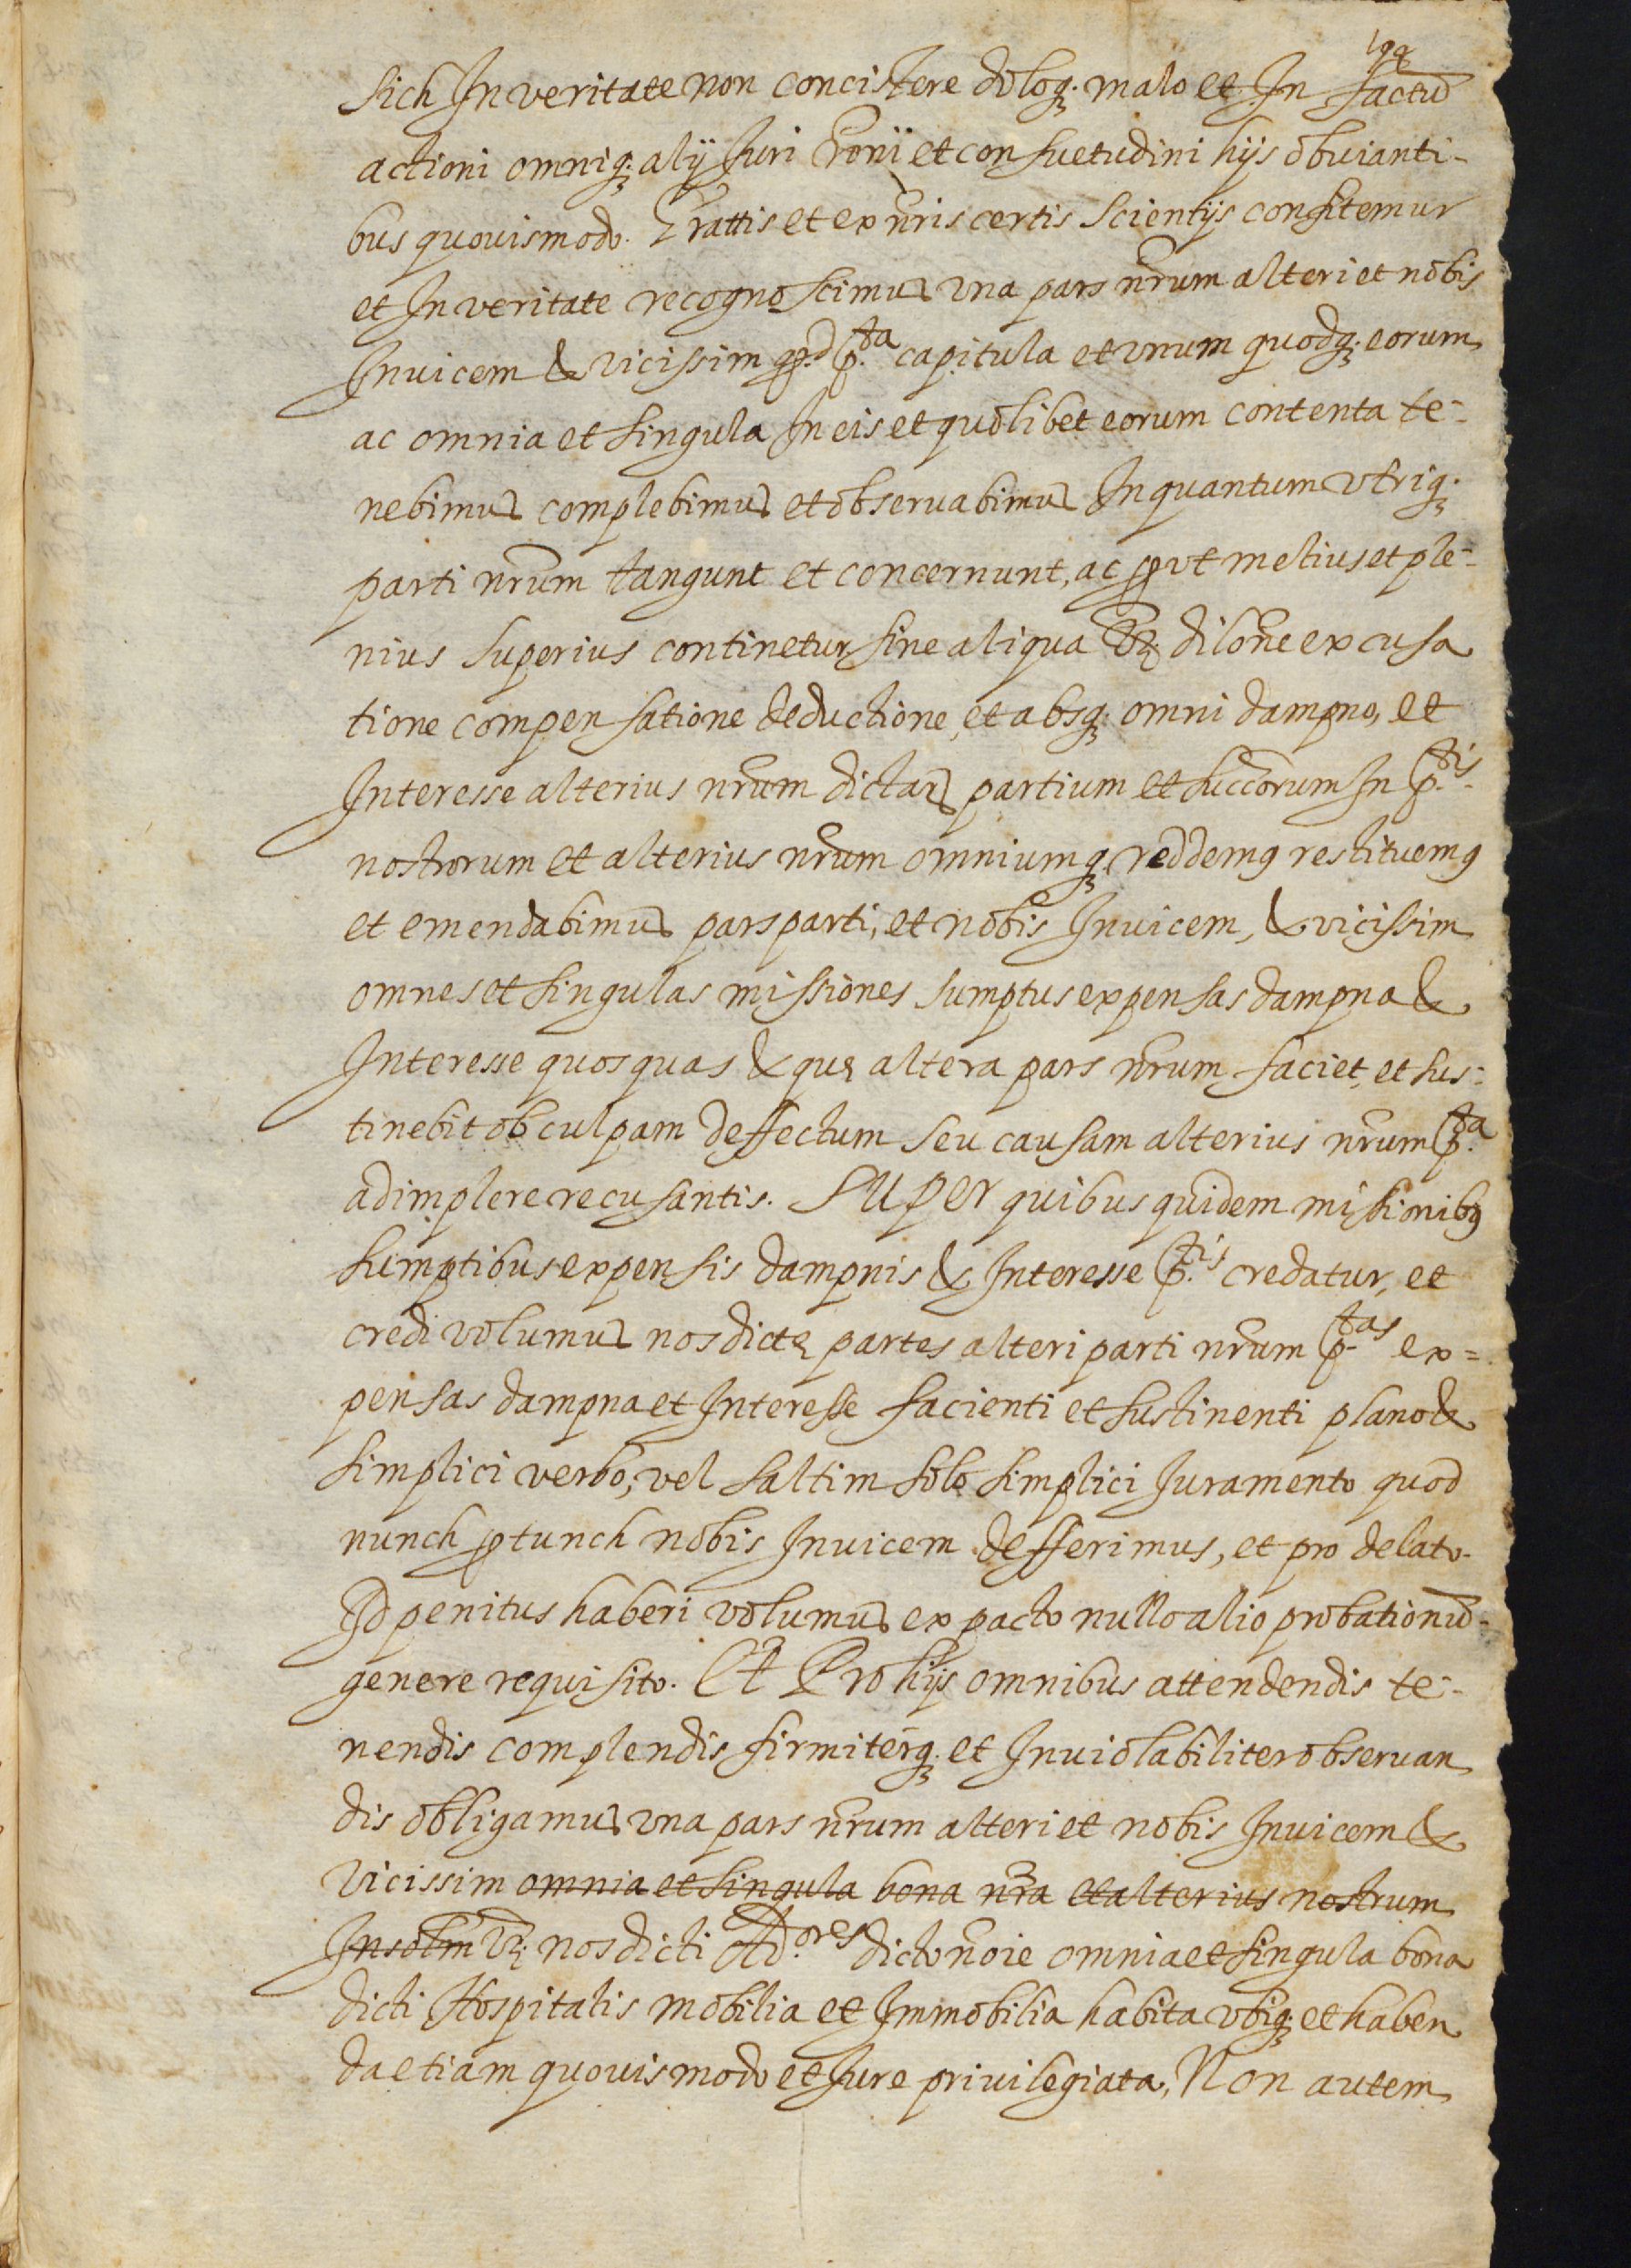 198
sich In veritate non concistere doloq; malo et In factū
actioni omniq; alÿ Juri r̃oni et consuetudini hÿs obuianti-
bus quouismodo. Grattis et ex nr̃is certis scientÿs confitemur
et In veritate recognoscimus vna pars nr̃um alteri et nobis
Inuicem & vicissim qd p.ta capitula et vnum quodq; eorum
ac omnia et singula In eis et quolibet eorum contenta te-
nebimus complebimus et obseruabimus In quantum vtriq;
parti nr̃um tangunt et concernunt, ac ꝓut melius et ple-
nius superius continetur sine aliqua dilõne excusa
tione compensatione deductione, et absq; omni dampno, et
Interesse alterius nr̃um dictarꝝ partium et succõrum In p.tis
nostrorum et alterius nr̃um omniumq; reddemꝯ restituemꝯ
et emendabimus pars parti, et nobis Inuicem, & vicissim
omnes et singulas missiones sumptus expensas dampna &
Interesse quos quas & quę altera pars nr̃um faciet, et sus-
tinebit ob culpam deffectum seu causam alterius nr̃um p.ta
adimplere recusantis. SUPER quibus quidem missionibꝯ
sumptibus expensis dampnis & Interesse p.tis credatur, et
credi volumus nos dictę partes alteri parti nr̃um p.tas ex=
pensas dampna et Interesse facienti et sustinenti plano &
simplici verbo, vel saltim solo simplici Juramento quod
nunch ꝓ tunch nobis Inuicem defferimus, et pro delato
Id penitus haberi volumus ex pacto nullo alio probationū
genere requisito. Et Pro hÿs omnibus attendendis te-
nendis complendis firmiterq; et Inuiolabiliter obseruan
dis obligamus vna pars nr̃um alteri et nobis Inuicem &
vicissim omnia et singula bona nr̃a et alterius nostrum
Insolm̃ Vz; nos dicti Ad.ores dicto nõie omnia et singula bona
dicti Hospitalis mobilia et Immobilia habita vbiq; et haben
da etiam quouis modo et Jure priuilegiata, Non autem